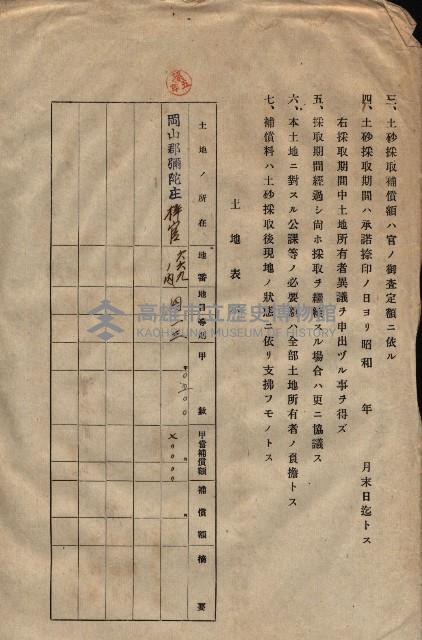 三、土砂採取補償額ハ官ノ御査定額ニ依ル
四、土砂採取期間ハ承諾捺印ノ日ヨリ昭和　年　月末日迄トス
右採取期間中土地所有者異議ヲ申出ヅル事ヲ得ズ
五、採取期間經過シ尚ホ採取ヲ繼續スル場合ハ更ニ協議ス
六、本土地ニ對スル公課等ノ必要額ハ全部土地所有者ノ負擔トス
七、補償料ハ土砂採取後現地ノ狀態ニ依リ支拂フモノトス
土地表
土地ノ所在　地番　地目　等則　甲數　甲當補償額　補償額　摘要
岡山郡彌陀庄
六六九ノ内
高雄市立歷史博物館
KAOHSIUNG MUSEUM OF HISTORY